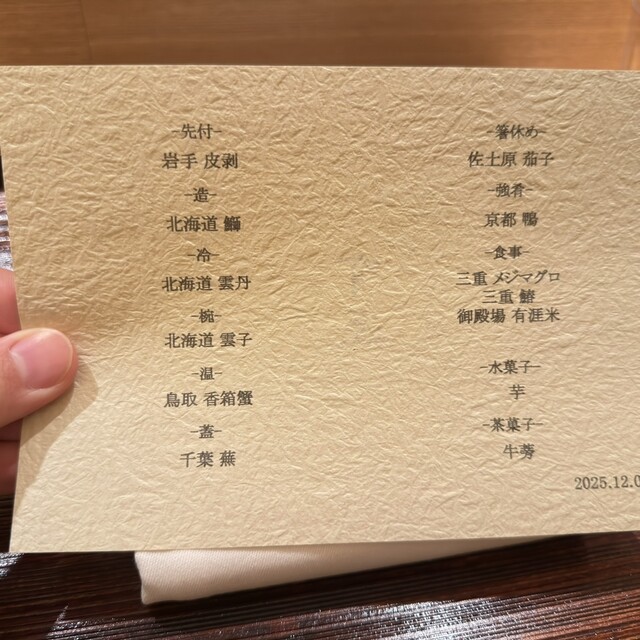 -先付-
岩手 皮剥
-造-
北海道 鰤
-冷-
北海道 雲丹
-椀-
北海道 雲子
-温-
鳥取 香箱蟹
-蓋-
千葉 蕪
-箸休め-
佐土原 茄子
-強肴-
京都 鴨
-食事-
三重 メジマグロ
三重 鰆
御殿場 有涯米
-水菓子-
芋
-茶菓子-
牛蒡
2025.12.0